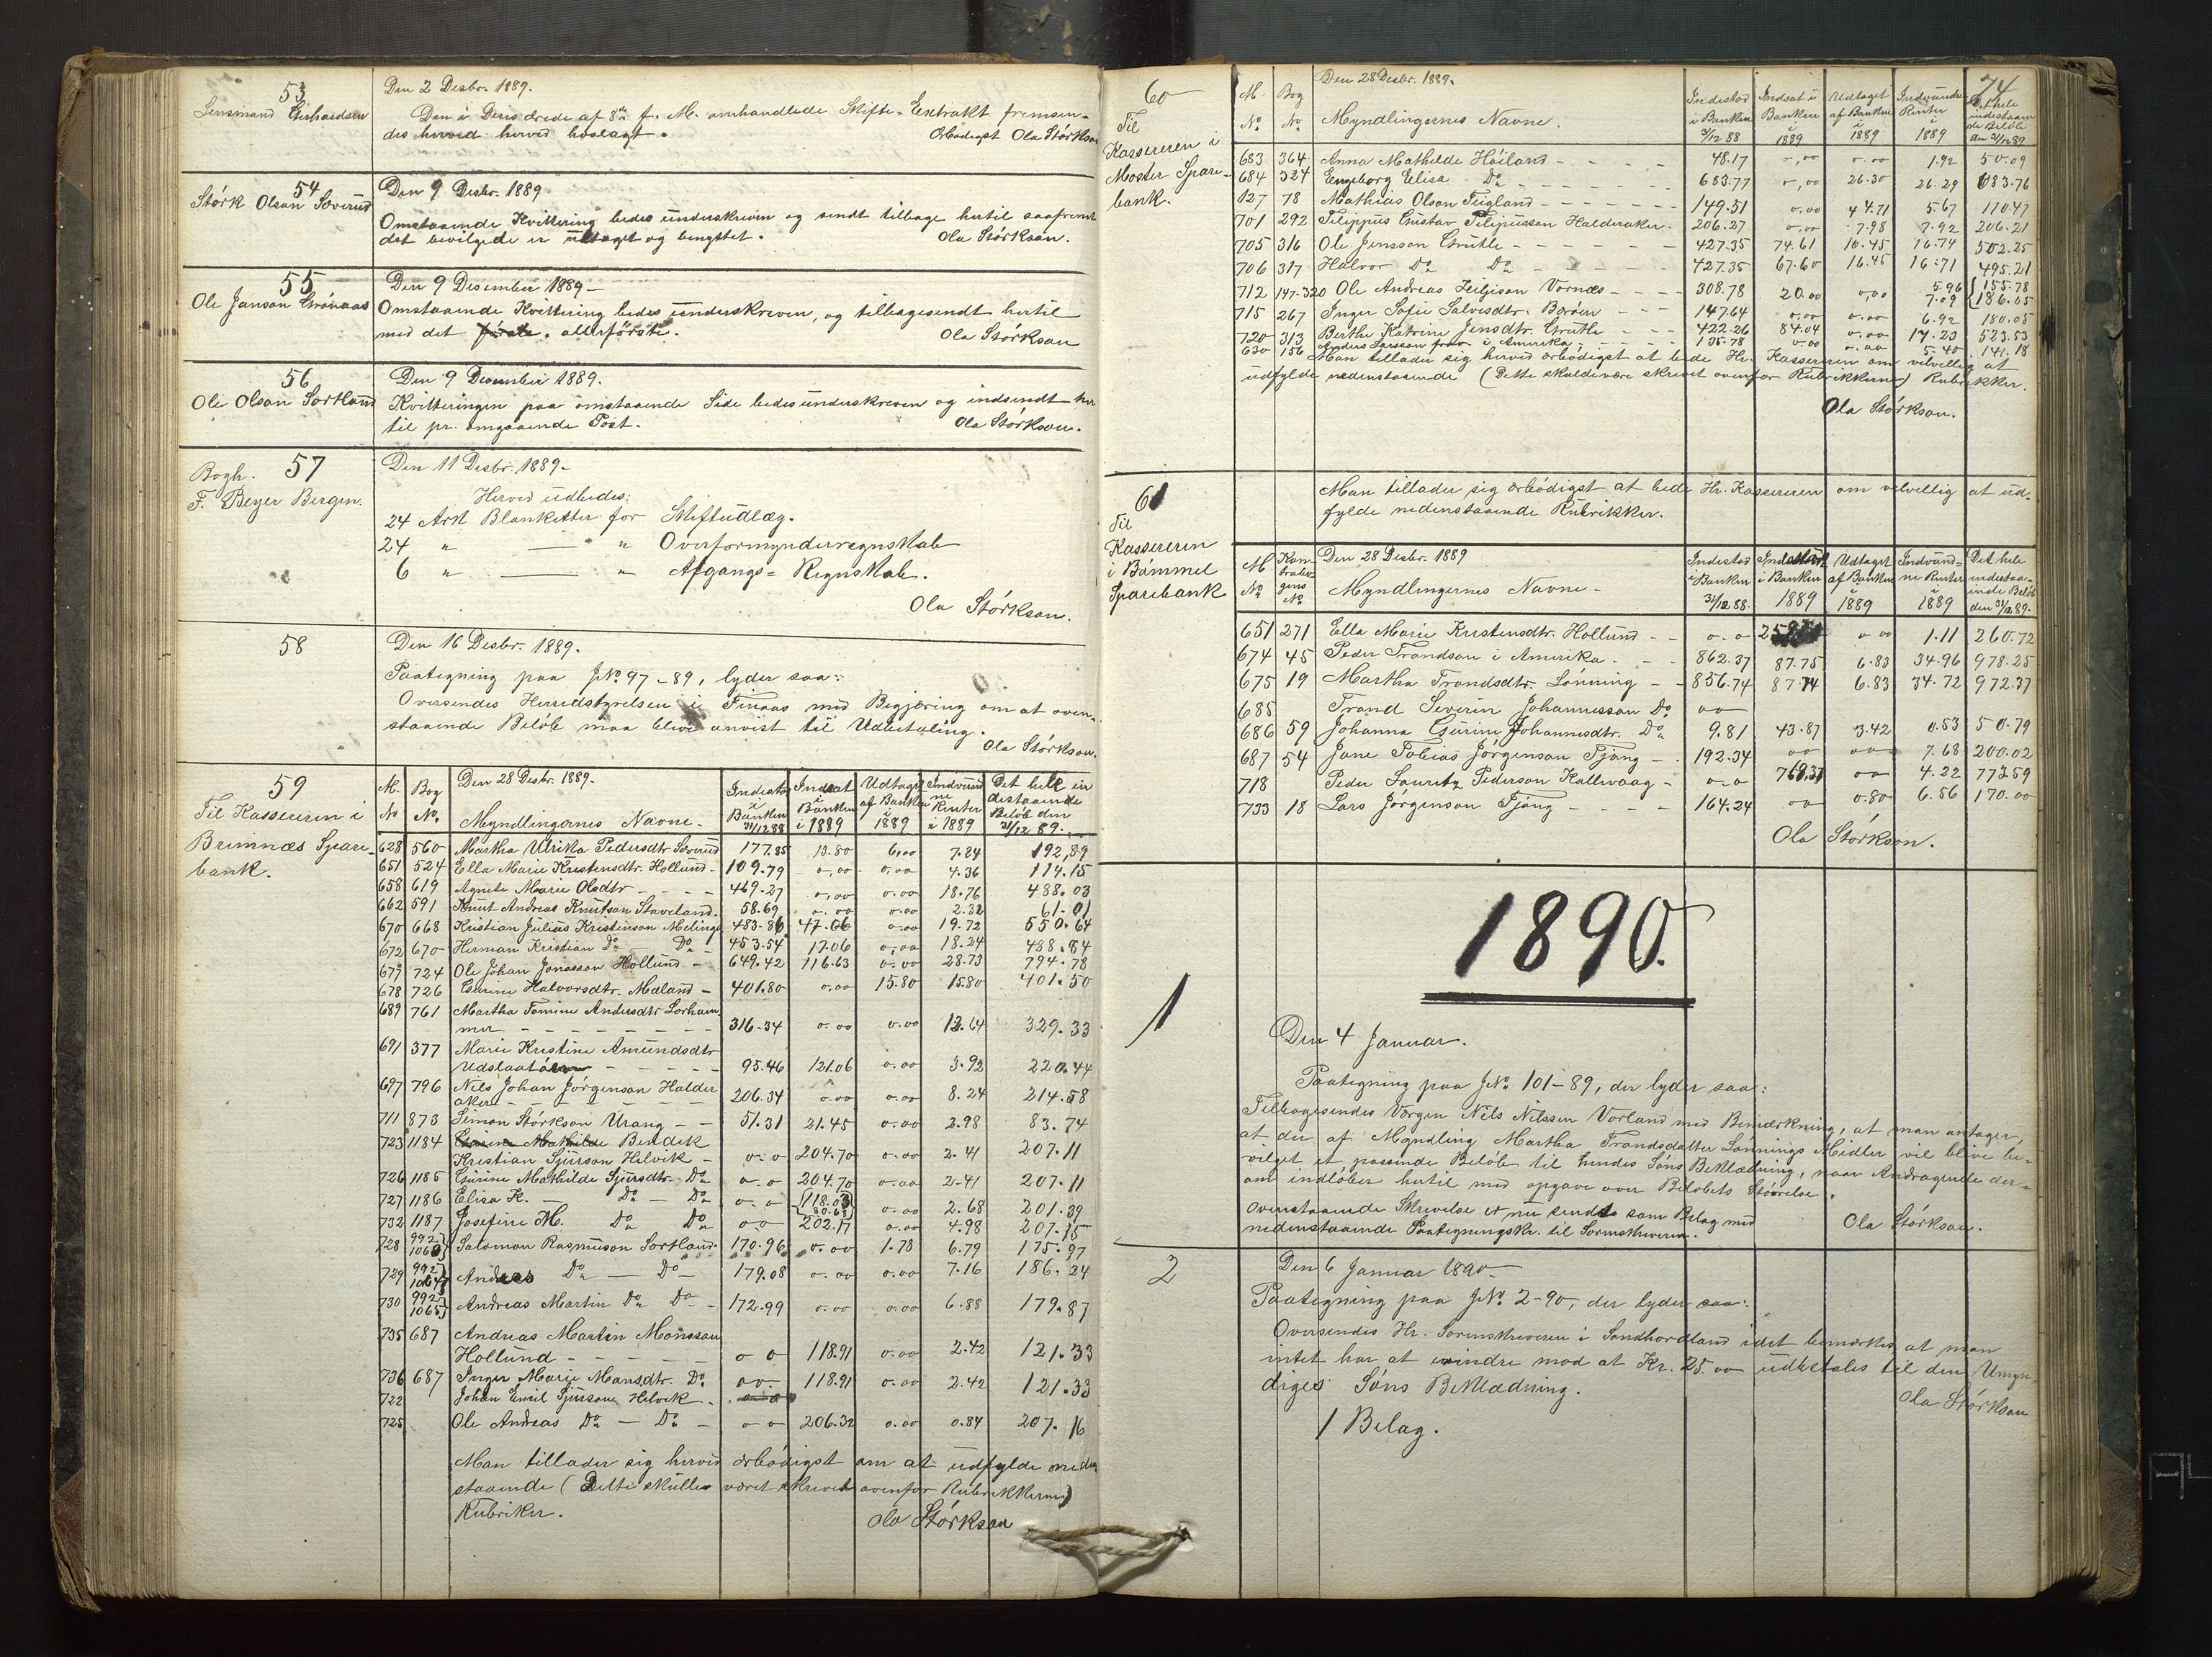 53
Lensmand Gerhardsen
Den 2 Desbr. 1889.
Den i Deres ærede af 8de f. M. omhandlede Skifte-Extrakt fremsen-
des herved hoslagt.
Ærbødigst Ola Størkson
54
Størk Olson Sæverud
Den 9 Desbr. 1889
Omstaaende Kvittering bedes underskreven og sendt tilbage hertil saafremt
det bevilgede er udtaget og benyttet.
Ola Størkson.
55
Ole Janson Grønaas
Den 9 Desember 1889
Omstaaende Kvittering bedes underskreven, og tilbagesendt hertil
med det første, allerførste.
Ola Størkson
56
Ole Olson Sortland
Den 9 Desember 1889.
Kvitteringen paa omstaaende Side bedes underskreven og indsendt her
til pr. omgaaende Post.
Ola Størkson.
57
Bogh.
F. Beyer Bergen.
Den 11 Desbr. 1889
Herved udbedes:
24 Ark Blanketter for Skifteudlæg.
24 " — " Overformynderregnskab
6 " — " Afgangs-Regnskab.
Ola Størkson.
58
Den 16 Desbr. 1889.
Paategning paa JNo. 97-89, lyder saa:
Oversendes Herredstyrelsen i Finaas med Begjæring om at oven-
staaende Beløb maa blive anvist til Udbetaling.
Ola Størkson.
59
Til Kassereren i
Brimnæs Spare-
bank.
M. No Bog No. Den 28 Desbr. 1889. Myndlingernes Navne - Indestod i Banken 31/12 88 Indsat i Banken i 1889 Udtaget af Banken i 1889 Indvundne Renter i 1889 Det hele indestaaende Beløb den 31/12 89.
628 560 Martha Ulrika Pedersdtr Sæverud 177.85 13.80 6,00 7.24 192,89
651 524 Ella Marie Kristensdtr. Hollund - 109.79 0,00 0.00 4.36 114.15
658 619 Agnete Marie Olsdtr - - - - 469.27 0,00 0.00 18.76 488.03
662 591 Knut Andreas Knutson Staveland. 58.69 0.00 0.00 2.32 61.01
670 668 Kristian Julius Kristenson Melings 483.86 47.06 0.00 19.72 550.64
672 670 Herman Kristian Do Do - 453.54 17.06 0,00 18.24 488.84
677 724 Ole Johan Jonasson Hollund - 649.42 116.63 0.00 28.73 794.78
678 726 Gurine Halvorsdtr. Mæland - 401.80 0.00 15.80 15.80 401.50
689 761 Martha Tomine Andersdtr Lorham
mer - - - - 316-34 0.00 0.00 12.64 329.33
691 377 Marie Kristine Amundsdtr
Udslaatøen - - - - 95.46 121.06 0.00 3.92 220.44
697 796 Nils Johan Jørgenson Halder
aker - - - - 206.34 0.00 0.00 8.24 214.58
711 873 Simon Størkson Urang - - 51.31 21.45 0.00 2.98 83.74
723 1184 Gurine Mathilde Bendik
Kristian Sjurson Helvik - 0.0 204.70 0.00 2.41 207.11
726 1185 Gurine Mathilde Sjursdtr. Do 0.0 204.70 0.00 2.41 207.11
727 1186 Elisa K. — Do — Do 0.0 118.03 0.00 2.68 201.39
732 1187 Josefine M. Do Do 00 202.17 0.00 4.98 207.15
728 992 1060 Salomon Rasmuson Sortland. 170.96 0.00 1.78 6.79 175.97
729 992 1064 Andreas Do — Do 179.08 0.00 0.00 7.16 186.24
730 992 1065 Andreas Martin Do Do - 172.99 0.00 0.00 6.88 179.87
735 687 Andreas Martin Monsson
Hollund - - - - 0 0 118.91 0.00 2.42 121.33
736 687 Inger Marie Monsdtr. Do 00 118.91 0.00 2.42 121.33
722 Johan Emil Sjurson Helvik.
725 Ole Andreas Do — Do - 00 206.32 0.00 0.84 207.16
Man tillader sig herved ærbødigst om at udfylde neden
staaende (Dette skulde været skrevet ovenfor Rubrikkerne)
Rubriker.
Ola Størkson
74
60
Til
Kassereren i
Moster Spare-
bank.
M. No Bog No Den 28 Desbr. 1889. Myndlingernes Navne. Indestod i Banken 31/12 88 Indsat i Banken 1889 Udtaget af Banken i 1889 Indvundne Renter i 1889 Det hele indestaaende Beløb den 31/12 89
683 364 Anna Mathilde Høiland - - - - 48.17 0,00 0.00 1.92 50.09
684 324 Engeborg Elisa Do - - - - 683.77 0,00 26.30 26.29 683.76
127 78 Mathias Olson Fugland - - - - 149.51 0.00 44.71 5.67 110.47
701 292 Filippus Gustav Filipusson Halderaker. 206.27 0.00 7.98 7.92 206.21
705 316 Ole Jensson Grutle - - - - 427.35 74.61 16.45 16.74 502.25
706 317 Halvor Do Do - - - - 427.35 67.60 16.45 16.71 495.21
712 147-320 Ole Andreas Zeiljeson Vornæs - - 308.78 20.00 0,00 5.96 7.09 155.78 186.05
715 267 Inger Sofie Salvesdtr. Børøen - - - 147.64 0.00 0.00 6.92 180.05
720 313 Berthe Katrine Jensdtr. Grutle - - 422.26 84.04 0.00 17.23 523.53
630 156 Anders Larsson fræv i Amerika - - 135.78 0.00 0.00 5.40 141.18
Man tillader sig herved ærbødigst at bede Hr. Kassereren om velvillig at
udfylde nedenstaaende (Dette skulde være skrevet ovenfor Rubrikkerne) Rubrikker.
Ola Størkson.
61
Til
Kassereren
i Bømmel
Sparebank
Man tillader sig ærbødigst at bede Hr. Kassereren om velvillig at ud-
fylde nedenstaaende Rubrikker.
M No Kontrabogens No Den 28 Desbr. 1889 Myndlingernes Navne - Indestod i Banken 31/12 88. i Banken 1889 Udtaget af Banken i 1889 Indvundne Renter 1889 Det hele indestaaende Beløb den 31/12 89.
651 271 Ella Marie Kristensdtr. Hollund - - 0.0 0 00 1.11 260.72
674 45 Peder Trondson i Amerika. - - 862.37 87.75 6.83 34.96 978.25
675 19 Martha Trondsdtr. Lønning - - 856.74 87.74 6.83 34.72 972.37
685 Trond Severin Johannesson Do 00
686 59 Johanna Gurine Johannesdtr. Do 9.81 43.87 3.42 0.53 50.79
687 54 Jane Tobias Jørgenson Tjong - . 192.34 00 00 7.68 200.02
718 Peder Lauritz Pederson Kallevaag - 0.0 769,37 00 4.22 773.59
733 18 Lars Jørgenson Tjong - - - - 164.24 00 0.80 6.56 170.00
Ola Størkson.
1890.
1
Den 4 Januar.
Paategning paa JNo. 101-89, der lyder saa:
Tilbagesendes Værgen Nils Nilssen Vorland med Bemærkning, at man antager,
at der af Myndling Martha Trondsdatter Lønnings Midler vil blive be-
vilget et passende Beløb til hendes Søns Beklædning, naar Andragende der-
om indløber hertil med opgave over Beløbets Størrelse.
Ovenstaaende Skrivelse er nu sendt som Bilag med
nedenstaaende Paategningskr. til Sorenskriveren.
Ola Størkson.
2
Den 6 Januar 1890
Paategning paa JNo. 2-90, der lyder saa:
Oversendes Hr. Sorenskriveren i Søndhordland idet bemærkes, at man
intet har at erindre mod at Kr. 25.00 udbetales til den Umyn-
diges Søns Beklædning.
Ola Størkson
1 Belag.